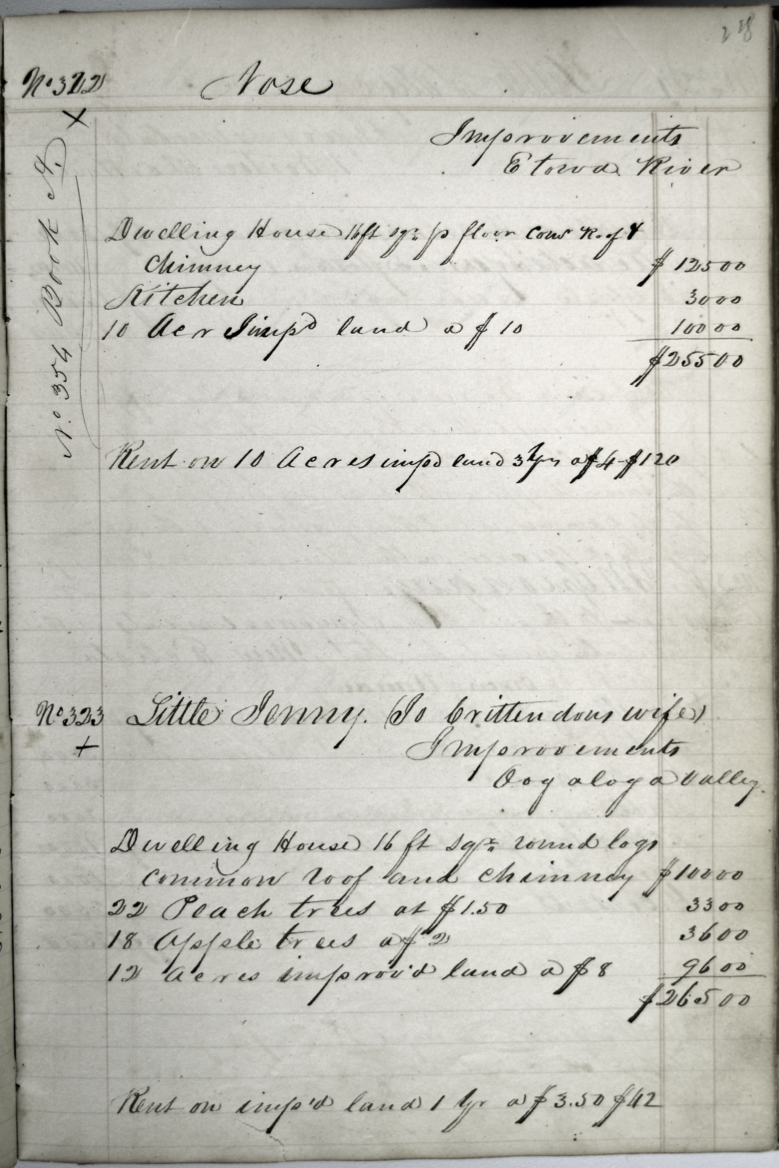 218
No 322 Nose
Improvements
Etowa River
No 354 Book A.
Dwelling House 16 ft sqr p floor Com Roof &
Chimney $ 125 00
Kitchen 30 00
10 Acr Imp'd land a $ 10 100 00
$255 00
Rent on 10 Acres imp'd land 3 yrs a $4 $120
No 323 Little Jenny. (Jo Crittendons wife)
Improvements
Oogaloga Valley.
Dwelling House 16 ft sqr round logs
common roof and chimney $100 00
22 Peach trees at $1.50 33 00
18 Apple trees a $ 2 36 00
12 Acres improv'd land a $ 8 96 00
$265 00
Rent on imp'd land 1 yr a $ 3.50 $42